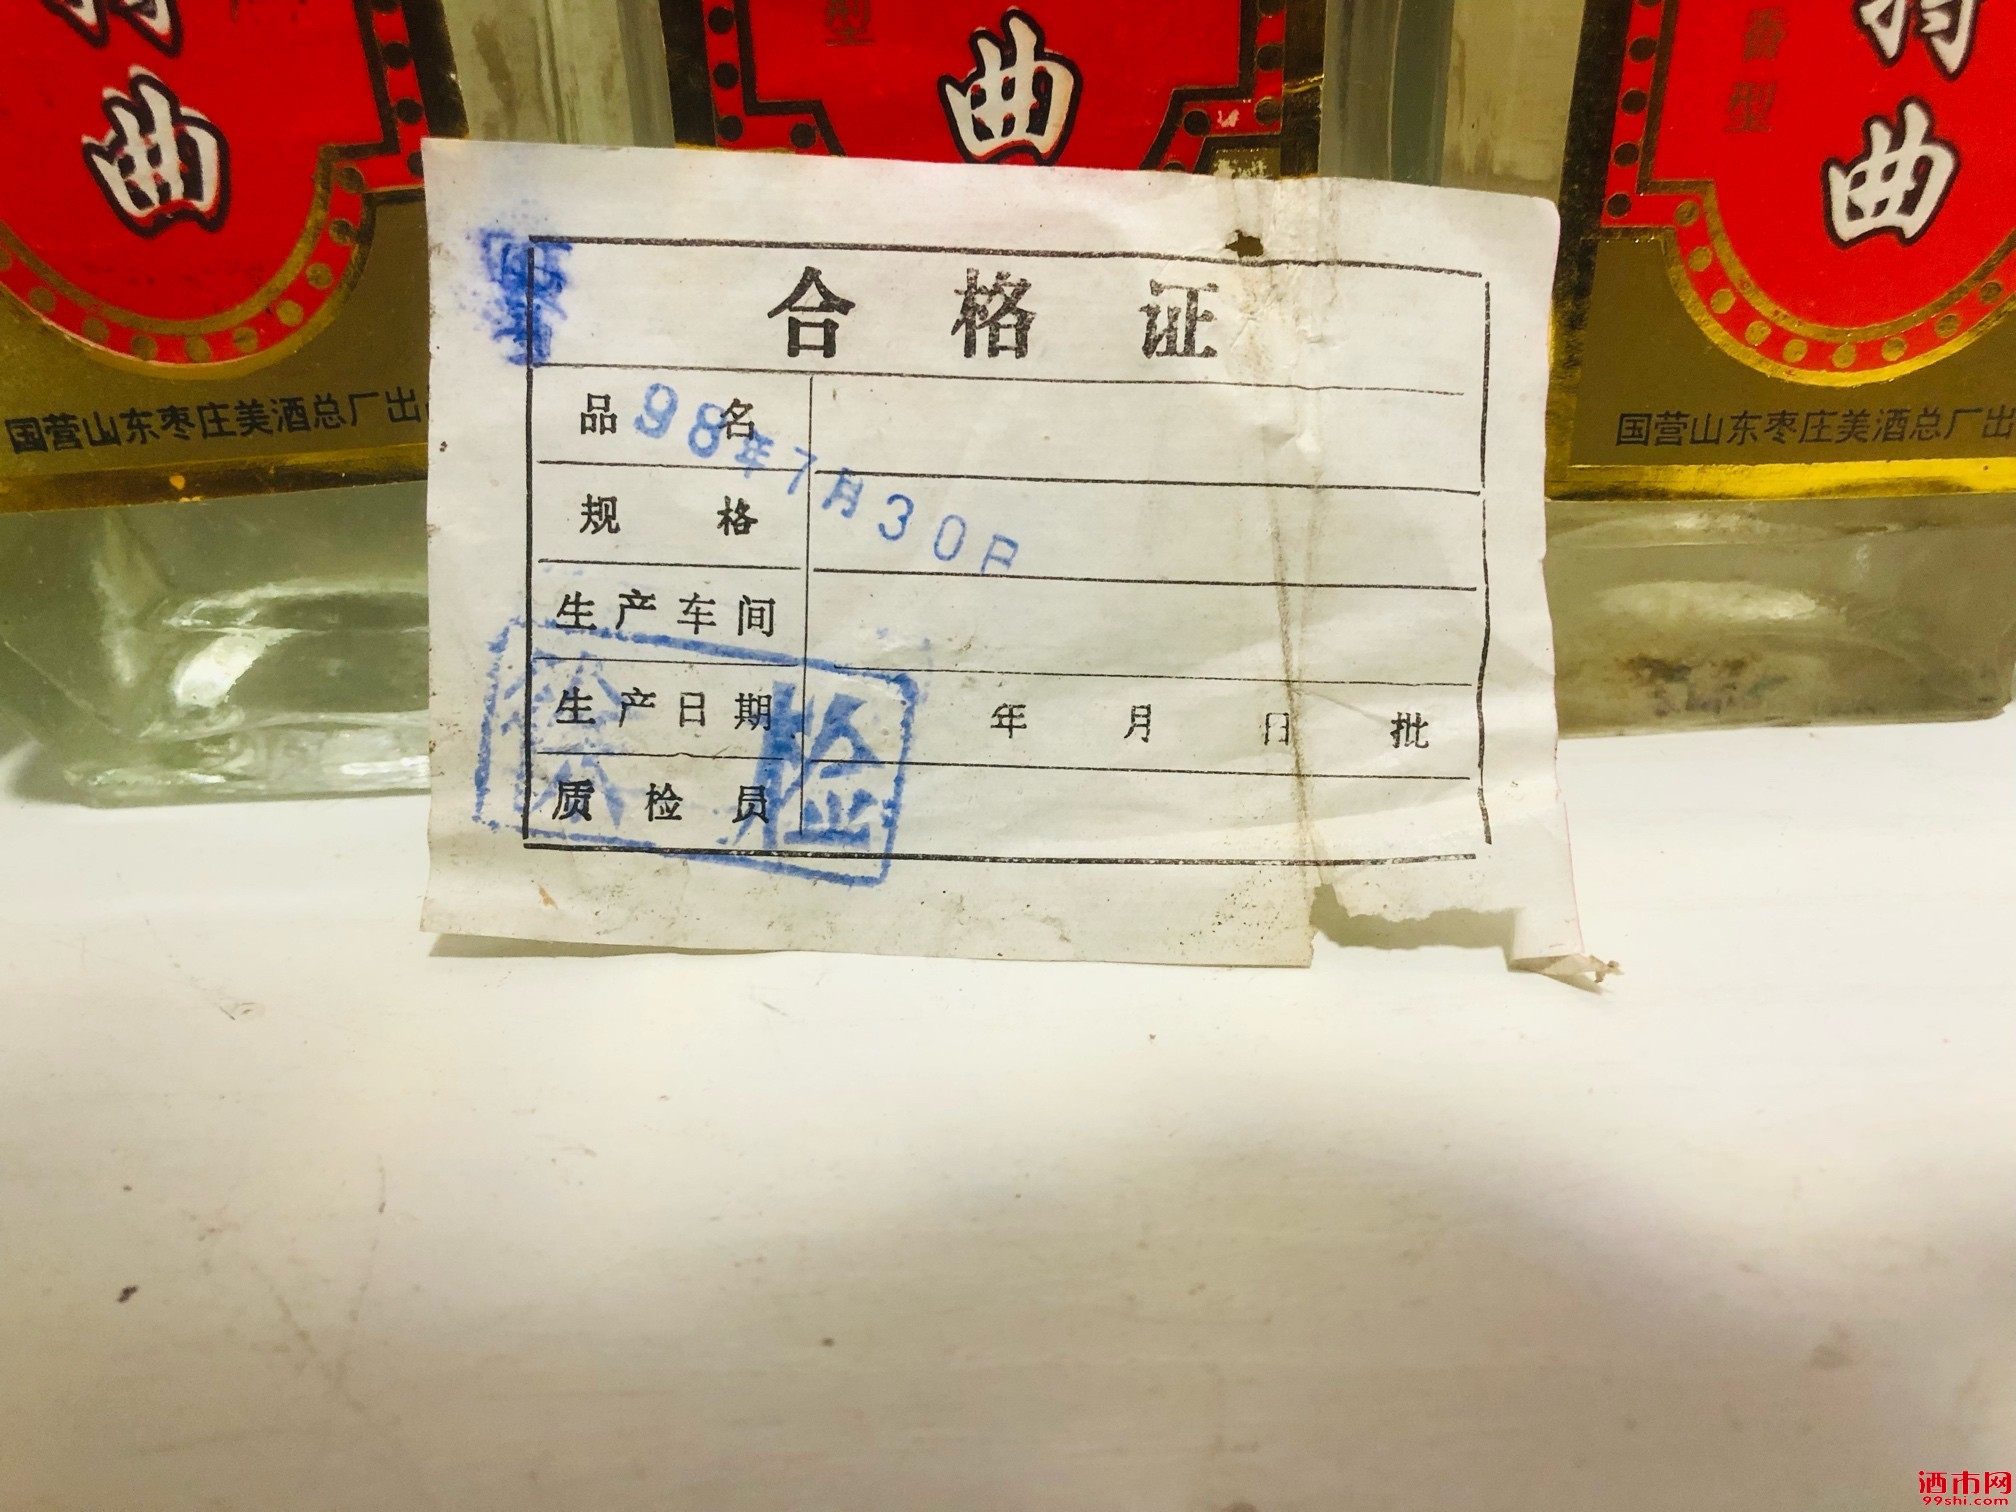 特曲
型
曲
香型
特曲
国营山东枣庄美酒总厂出
国营山东枣庄美酒总厂出
合格证
品名
98年7月30日
规格
生产车间
生产日期 年 月 日 批
质检员
检
酒市网
99shi.com